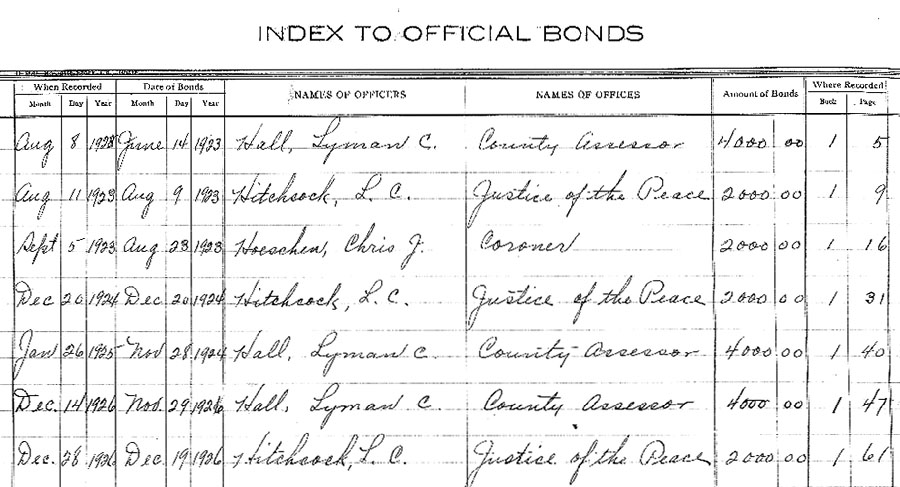 INDEX TO OFFICIAL BONDS
When Recorded Date of Bonds NAMES OF OFFICERS NAMES OF OFFICES Amount of Bonds Where Recorded
Month Day Year Month Day Year Book Page
Aug 8 1923 June 14 1923 Hall, Lyman C. County Assessor 4000 00 1 5
Aug 11 1923 Aug 9 1923 Hitchcock, L. C. Justice of the Peace 2000 00 1 9
Sept 5 1923 Aug 23 1923 Hoeschen, Chris J. Coroner 2000 00 1 16
Dec 20 1924 Dec 20 1924 Hitchcock, L. C. Justice of the Peace 2000 00 1 31
Jan 26 1925 Nov 28 1924 Hall, Lyman C. County Assessor 4000 00 1 40
Dec. 14 1926 Nov. 29 1926 Hall, Lyman C. County Assessor 4000 00 1 47
Dec. 28 1926 Dec 19 1926 Hitchcock, L. C. Justice of the Peace 2000 00 1 61